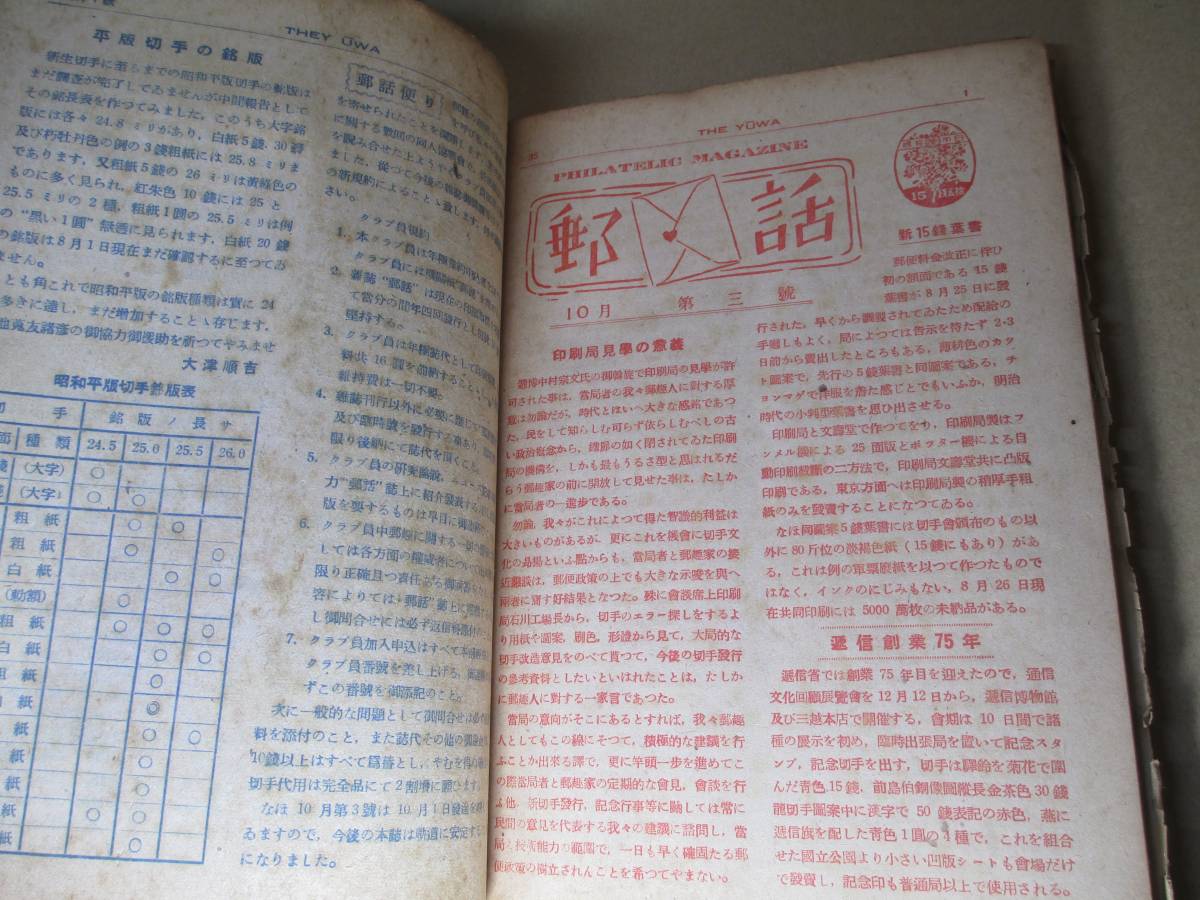 THEY ŪWA
平版切手の銘版
新生切手に至るまでの昭和平版切手の銘版は
まだ調査が完了してゐませんが中間報告として
その銘長表を作つてみました。このうち大字銘
版には各々 24.8 ミリがあり、白紙5錢、30錢
及び朽牡丹色の例の3錢粗紙には 25.8 ミリま
であります。又粗紙5錢の 26 ミリは黃綠色の
ものに多く見られ、紅朱色 10錢には 25 と
25.5 ミリの2種、粗紙1圓の 25.5 ミリは例
の“黑い1圓”無透に見られます。白紙 20錢
の銘版は8月1日現在まだ確認するに至つてゐ
ません。
とも角これで昭和平版の銘版種類は實に 24
多きに達し、まだ增加することゝ存じます。
友諸彥の御協力御援助を祈つてやみませ
大津順吉
昭和平版切手銘版表
切手 銘版ノ長サ
種類 24.5 25.0 25.5 26.0
(大字)
(大字)
粗紙
粗紙
白紙
(勅額)
粗紙
白紙
粗紙
白紙
紙
紙
紙
紙
紙
郵話便り
を寄せられたことを深謝
に關する數回の同人協議會
を睨み合せた上
ました。從つて今後の
の新規約によること 致します。
さい。
クラブ員規約
1. 本クラブ員は年極
クラブ員には機關紙
2. 雜誌“郵話”は現在の印刷
て當分の間年四回發行とし
堅持する。
3. クラブ員は年極誌代として
料共 16 圓を前納すること
維持費は一切不要。
4. 雜誌刊行以外に必要に應じ
及び臨時號を發行する事あり
限り後納にて誌代を頂くこと。
5. クラブ員の研究論說、
力“郵話”誌上に紹介發表する
版を要するものは早目に御
6. クラブ員中郵趣に關する一切の
しては各方面の權威者について
限り正確且つ責任ある御
容によりては“郵話”誌上に
し御問合せには必ず返信料添付
7. クラブ員加入申込はすべて本
クラブ員番號を差し上げる。
ずこの番號を御添記のこと。
次に一般的な問題として御問合せは必
料を添付のこと、また誌代その他の御
10錢以上はすべて爲替とし、やむを得
切手代用は完全品にて2割增に願ひます。
なほ 10月第3號は 10月1日發送
ゐますので、今後の本誌は軌道に安定する
になりました。
35 THE YŪWA 1
PHILATELIC MAGAZINE
郵話
10月 第三號
印刷局見學の意義
遞博中村宗文氏の御斡旋で印刷局の見學が許
可された事は、當局者の我々郵趣人に對する厚
意は勿論だが、時代とはいへ大きな感銘であつ
た。民をして知らしむ可らず依らしむべしの古
い政治觀念から、 の如く閉されてゐた印刷
局の機構を、しかも最もうるさ型と思はれるだ
らう郵趣家の前に開放して見せた事は、たしか
に當局者の一進步である。
勿論、我々がこれによつて得た智識的利益は
大きいものがあるが、更にこれを機會に切手文
化の是揚といふ點からも、當局者と郵趣家の接
近懇談は、郵便政策の上でも大きな示唆を與へ
兩者に齎す好結果となつた。殊に會談席上印刷
局石川工場長から、切手のエラー探しをするよ
り用紙や圖案、刷色、形證から見て、大局的な
切手改造意見をのべて貰つて、今後の切手發行
の參考資料としたいといはれたことは、たしか
に郵趣人に對する一家言であつた。
當局の意向がそこにあるとすれば、我々郵趣
人としてもこの線にそつて、積極的な建議を行
ふことが出來る譯で、更に竿頭一步を進めてこ
の際當局者と郵趣家の定期的な會見、會談を行
ふ他、新切手發行、記念行事等に勵しては常に
民間の意見を代表する我々の建議に諮問し、當
局 技術能力の範圍で、一日も早く確固たる郵
便政策の樹立されんことを希つてやまない。
15
新15錢葉書
郵便料金改正に伴ひ
初の額面である 15錢
葉書が8月25日に發
行された。早くから調製されてゐたため配給の
手廻しもよく、局によつては告示を待たず 2・3
日前から賣出したところもある。薄緋色のカタ
ト圖案で、先行の5錢葉書と同圖案である。チ
ヨンマゲで洋服を着た感じとでもいふか、明治
時代の小判型葉書を思ひ出させる。
印刷局と文壽堂で作つてをり、印刷局製はフ
ンメル機による 25 面版とポツター機による自
動印刷裁斷の二方法で、印刷局文壽堂共に凸版
印刷である。東京方面へは印刷局製の稍厚手粗
紙のみを發賣することになつてゐる。
なほ同圖案5錢葉書には切手會頒布のもの以
外に 80 斤位の淡褐色紙(15錢にもあり)があ
る、これは例の軍票廢紙を以つて作つたもので
はなく、インクのにじみもない。8月26日現
在共同印刷には 5000 萬枚の未納品がある。
遞信創業75年
遞信省では創業 75年目を迎えたので、通信
文化回顧展覽會を 12月12日から、遞信博物館
及び三越本店で開催する。會期は 10日間で諸
種の展示を初め、臨時出張局を置いて記念スタ
ンプ、記念切手を出す。切手は驛鈴を菊花で圍
んだ青色 15錢、前島伯銅像圖縱長金茶色30錢
龍切手圖案中に漢字で 50 錢表記の赤色、燕に
遞信旗を配した青色1圓の4種で、これを組合
せた國立公園より小さい凹版シートも會場だけ
で發賣し、記念印も普通局以上で使用される。